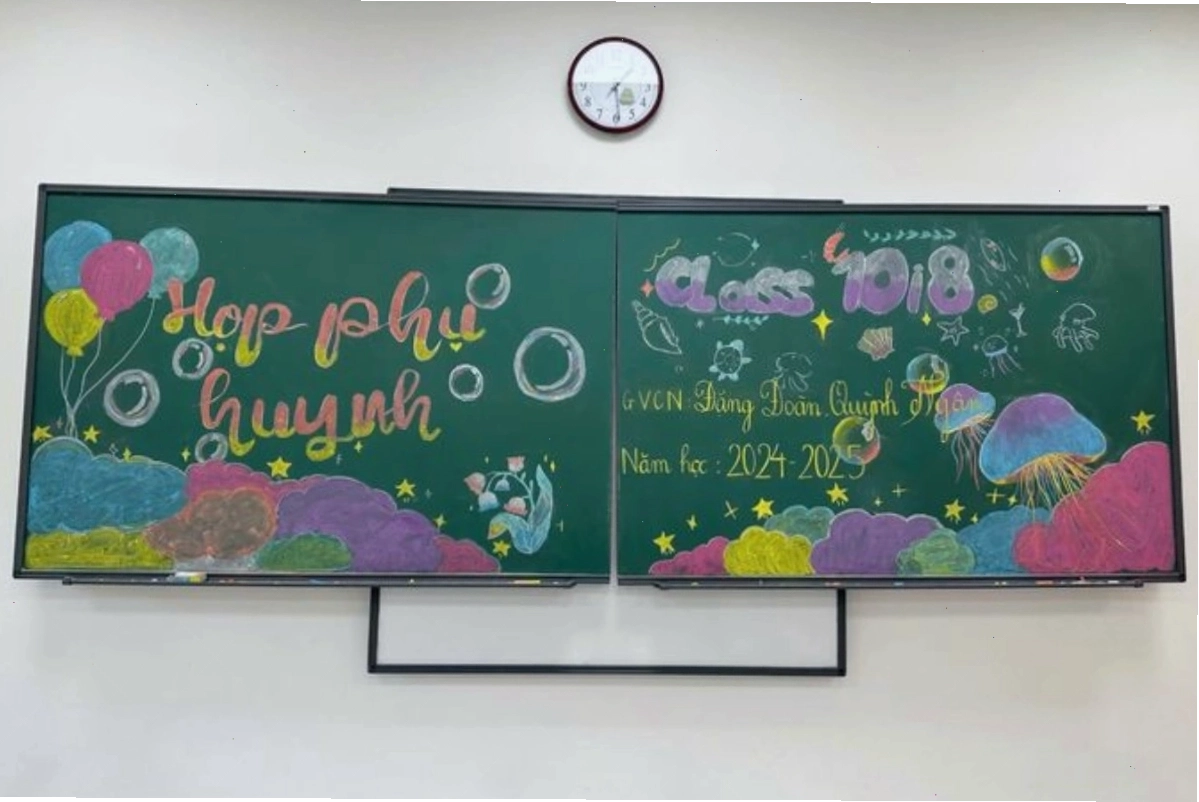 Họp phụ
huynh
CLass 10i8
GVCN: Đăng Đoàn Quỳnh Ngân
Năm học : 2024-2025
9 3
8 4
7 6 5